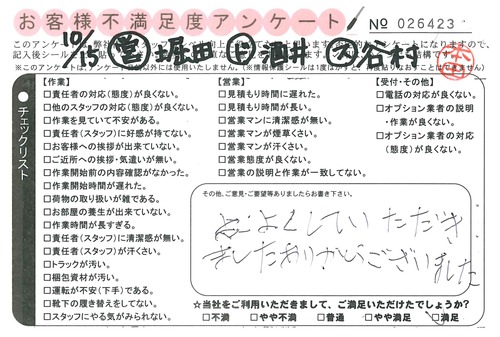 お客様不満足度アンケート
No 026423
10/15 営 堀田 酒井 谷村
※このアンケートは、
チェックリスト
【作業】
□責任者の対応(態度)が良くない。
□他のスタッフの対応(態度)が良くない。
□作業を見ていて不安がある。
□責任者(スタッフ)に好感が持てない。
□お客様への挨拶が出来ていない。
□ご近所への挨拶・気遣いが無い。
□作業開始前の内容確認がなかった。
□作業開始時間が遅れた。
□荷物の取り扱いが雑である。
□お部屋の養生が出来ていない。
□作業時間が長すぎる。
□責任者(スタッフ)に清潔感が無い。
□責任者(スタッフ)が汗くさい。
□トラックが汚い。
□梱包資材が汚い。
□運転が不安(下手)である。
□靴下の履き替えをしてない。
□スタッフにやる気がみられない。
【営業】
□見積もり時間に遅れた。
□見積もり時間が長い。
□営業マンに清潔感が無い。
□営業マンが煙草くさい。
□営業マンが汗くさい。
□営業態度が良くない。
□営業の説明と作業が一致してない。
【受付・その他】
□電話の対応が良くない。
□オプション業者の説明
・作業が良くない。
□オプション業者の対応
(態度)が良くない。
その他、ご意見・ご要望等ありましたらお書き下さい。
よくしていただき
ましたありがとうございました
☆当社をご利用いただきまして、ご満足いただけたでしょうか?
□不満 □やや不満 □普通 □やや満足 □満足